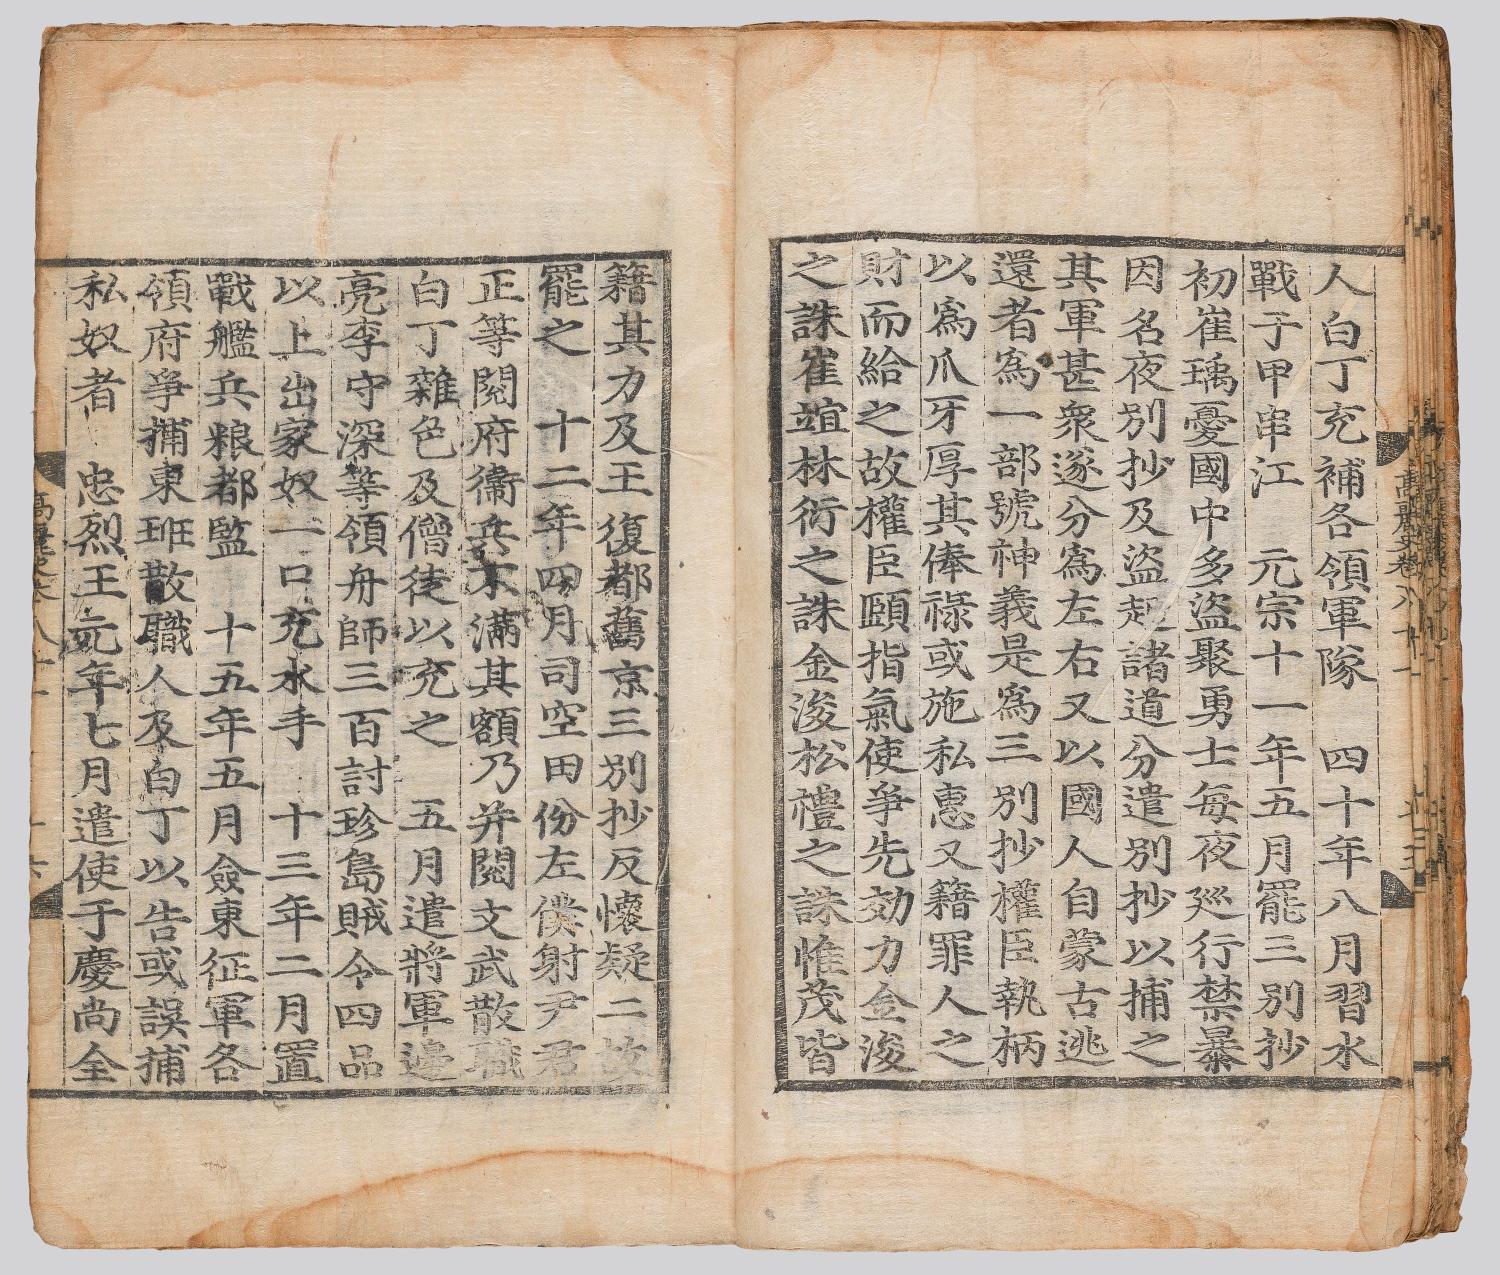 人白丁充補各領軍隊　四十年八月習水
戰于甲串江　元宗十一年五月罷三別抄
初崔瑀憂國中多盜聚勇士每夜巡行禁暴
因名夜別抄及盜起諸道分遣別抄以捕之
其軍甚衆遂分爲左右又以國人自蒙古逃
還者爲一部號神義是爲三別抄權臣執柄
以爲爪牙厚其俸祿或施私惠又籍罪人之
財而給之故權臣頤指氣使爭先効力金浚
之誅崔竩林衍之誅金浚松禮之誅惟茂皆
籍其力及王復都舊京三別抄反懷疑二故
罷之　十二年四月司空田份左僕射尹君
正等閱府衞兵不滿其額乃并閱文武散職
白丁雜色及僧徒以充之　五月遣將軍邊
亮李守深等領舟師三百討珍島賊令四品
以上出家奴一口充水手　十三年二月置
戰艦兵粮都監　十五年五月僉東征軍各
領府爭捕東班散職人及白丁以告或誤捕
私奴者　忠烈王元年七月遣使于慶尚全
高麗史卷八十一